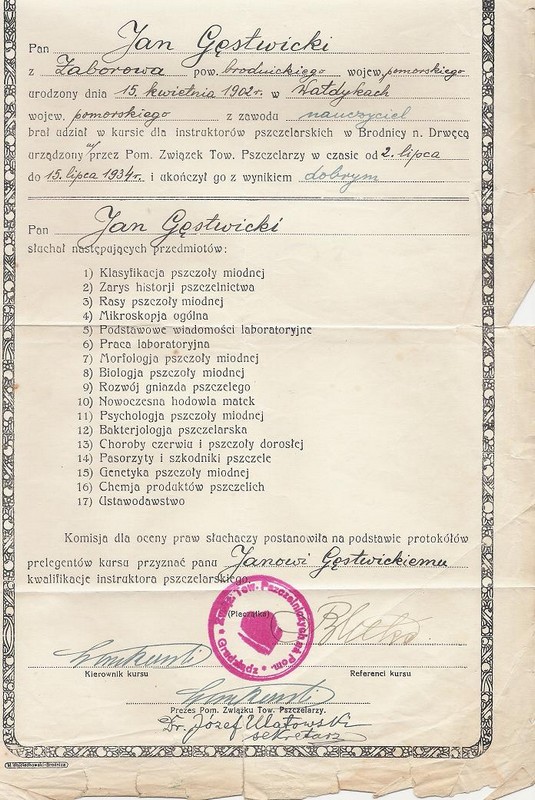 Pan Jan Gęstwicki
z Zaborowa pow. brodnickiego wojew. pomorskiego
urodzony dnia 15. kwietnia 1902r. w Wałdykach
wojew. pomorskiego z zawodu nauczyciel
brał udział w kursie dla instruktorów pszczelarskich w Brodnicy n. Drwęcą
urządzonym przez Pom. Związek Tow. Pszczelarzy w czasie od 2. lipca
do 15. lipca 1934r. i ukończył go z wynikiem dobrym
Pan Jan Gęstwicki
słuchał następujących przedmiotów:
1) Klasyfikacja pszczoły miodnej
2) Zarys historji pszczelnictwa
3) Rasy pszczoły miodnej
4) Mikroskopja ogólna
5) Podstawowe wiadomości laboratoryjne
6) Praca laboratoryjna
7) Morfologja pszczoły miodnej
8) Biologja pszczoły miodnej
9) Rozwój gniazda pszczelego
10) Nowoczesna hodowla matek
11) Psychologja pszczoły miodnej
12) Bakterjologja pszczelarska
13) Choroby czerwiu i pszczoły dorosłej
14) Pasorzyty i szkodniki pszczele
15) Genetyka pszczoły miodnej
16) Chemja produktów pszczelich
17) Ustawodawstwo
Komisja dla oceny praw słuchaczy postanowiła na podstawie protokółów
prelegentów kursu przyznać panu Janowi Gęstwickiemu
kwalifikacje instruktora pszczelarskiego.
(Pieczątka)
Kierownik kursu Referenci kursu
Prezes Pom. Związku Tow. Pszczelarzy.
Dr. Józef Ulatowski
sekretarz